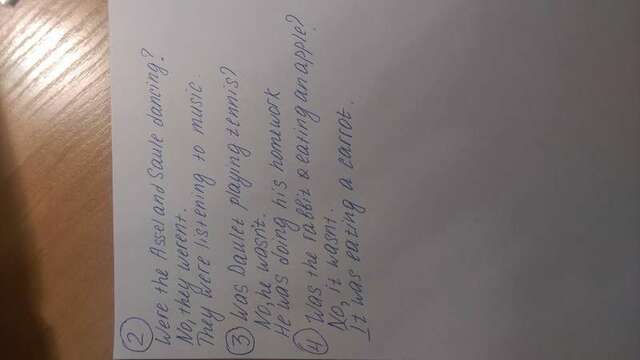 ②
Were the Assel and Saule dancing?
No, they weren't.
They were listening to music.
③ Was Daulet playing tennis?
No, he wasn't.
He was doing his homework
④ Was the rabbit eating an apple?
No, it wasn't.
It was eating a carrot.